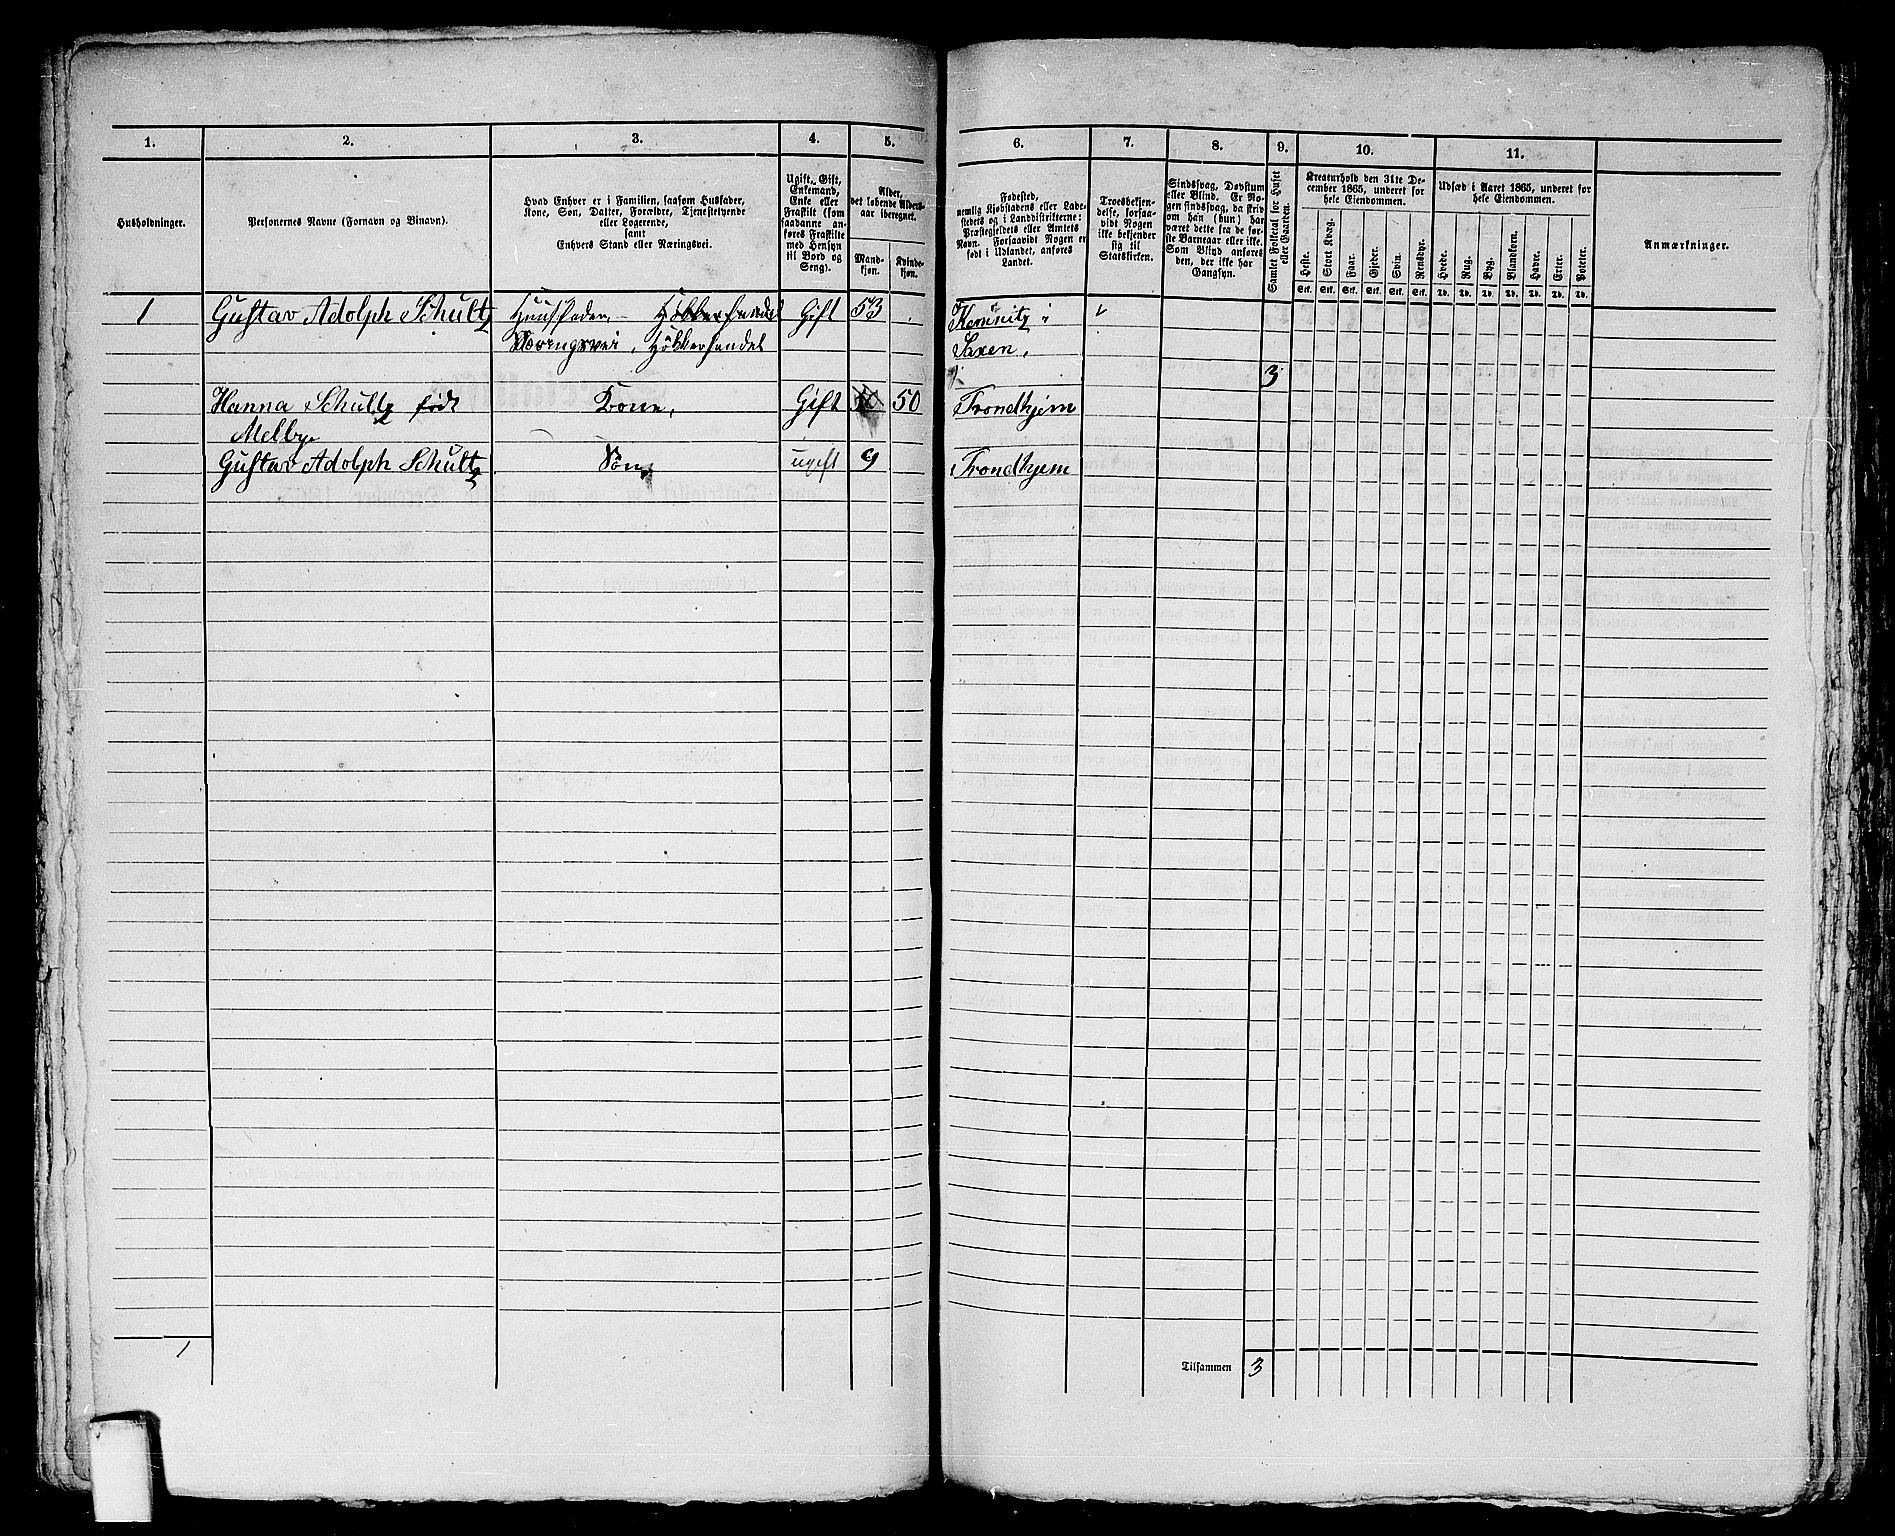 1.
2.
3.
4.
5.
6.
7.
8.
9.
10.
11.
Husholdninger.
Personernes Navne (Fornavn og Tilnavn).
Hvad Enhver er i Familien, saasom Husfader,
Kone, Søn, Datter, Forældre, Tjenestetyende
eller Logerende,
samt
Enhvers Stand eller Næringsvei.
Ugift, Gift,
Enkemand,
Enke eller
Fraskilt (som
saadanne an-
føres Fraskilte
med Hensyn
til Bord og
Seng).
Alder,
det løbende Alders-
aar iberegnet.
Mand-
kjøn.
Kvinde-
kjøn.
Fødested,
nemlig Kjøbstadens eller Lade-
stedets og i Landdistrikterne:
Præstegjeldets eller Amtets
Navn. Forsaavidt Nogen er
født i Udlandet, anføres
Landet.
Troesbekjen-
delse, forsaa-
vidt Nogen
ikke bekjender
sig til
Statskirken.
Sindssvag, Døvstum
eller Blind. Er No-
gen sindssvag, da skriv
om han (hun) har
været dette fra de før-
ste Barneaar eller ikke.
Som Blind anføres
den, der ikke har
Gangsyn.
Samlet Folketal for Huset
eller Gaarden.
Kreaturhold den 31te De-
cember 1865, underet for
hele Eiendommen.
Heste.
Stort Kvæg.
Faar.
Gjeder.
Svin.
Rensdyr.
Stk. Stk. Stk. Stk. Stk. Stk.
Udsæd i Aaret 1865, underet for
hele Eiendommen.
Hvede.
Rug.
Byg.
Blandkorn.
Havre.
Erter.
Poteter.
Td. Td. Td. Td. Td. Td. Td.
Anmærkninger.
1 Gustav Adolph Schultz Huusfader, Høkkerhandel Gift 53 Kemnitz i
Næringsvei, Høkkerhandel Saxen,
3
Hanna Schultz født Kone, Gift 50 50 Trondhjem
Melbye
Gustav Adolph Schultz Søn, ugift 9 Trondhjem
1
Tilsammen 3